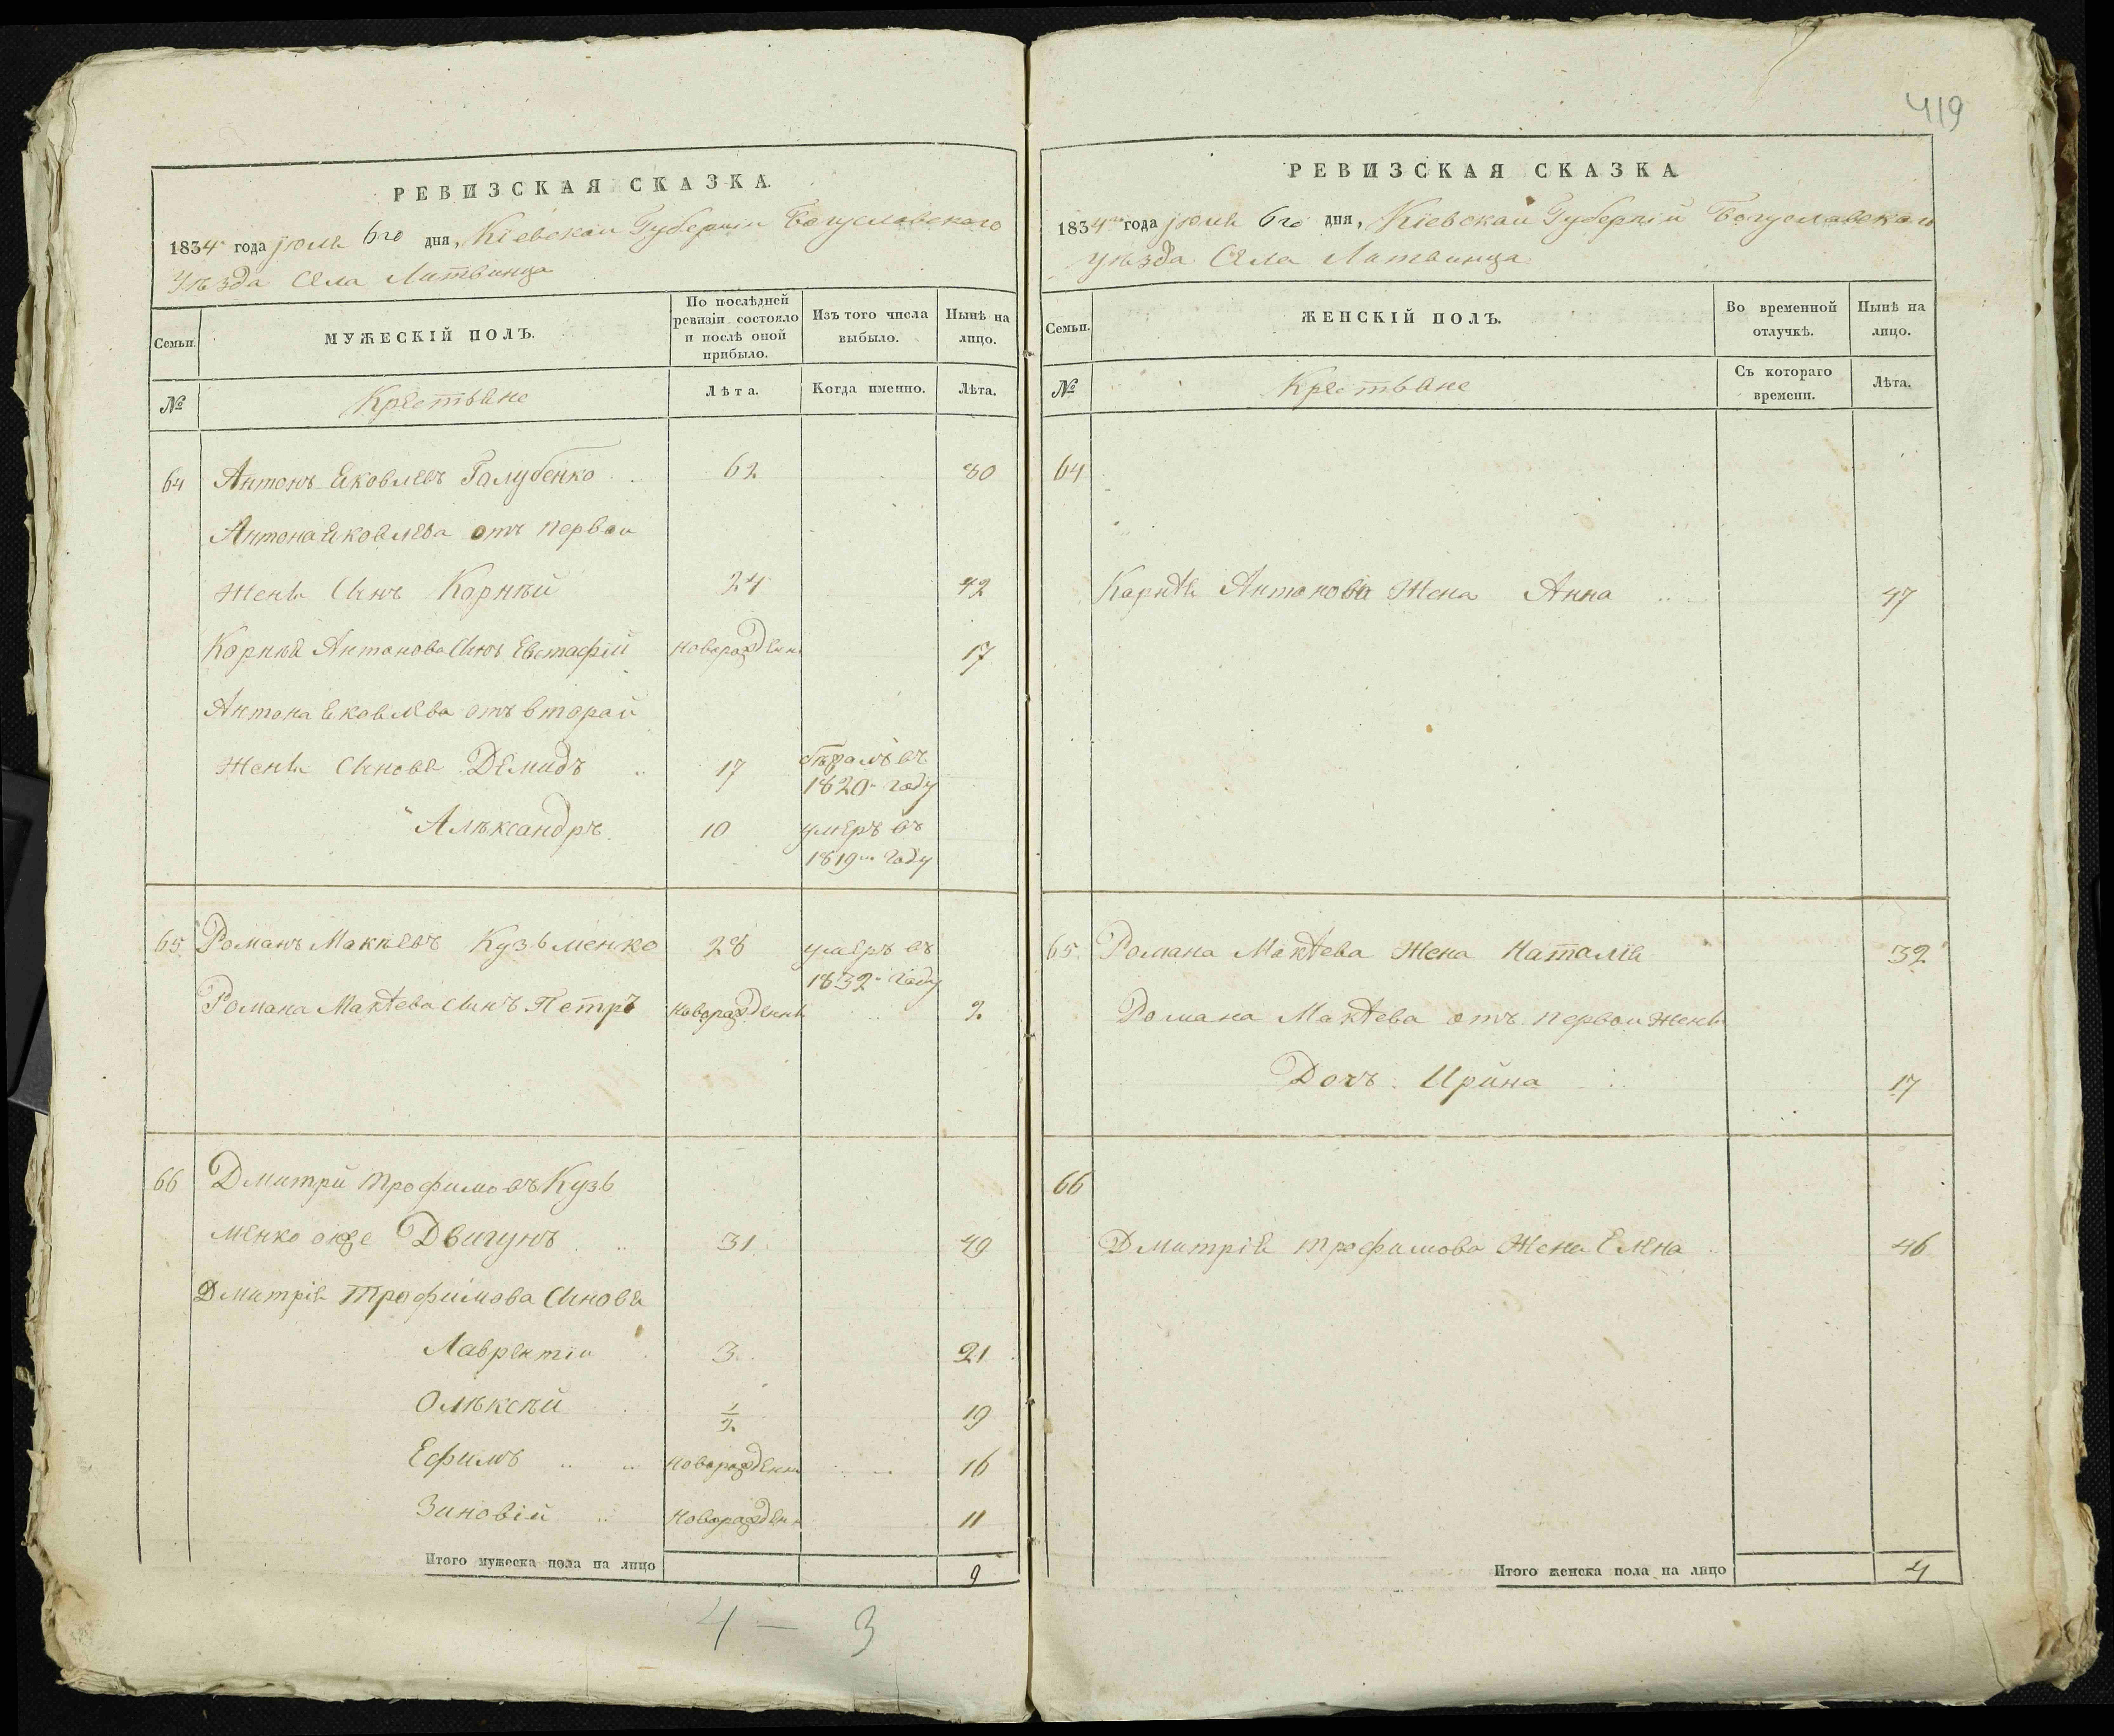 419
РЕВИЗСКАЯ СКАЗКА.
1834 года июля 6го дня, Кіевской Губерніи Богуславского
Уѣзда Села Литвинца
Семьи.
МУЖЕСКІЙ ПОЛЪ.
По послѣдней ревизіи состояло и послѣ оной прибыло.
Изъ того числа выбыло.
Нынѣ на лицо.
№
Крестьяне
Лѣта.
Когда именно.
Лѣта.
64 Антонъ Яковлевъ Голубенко 62 80
Антона Яковлева отъ первой
жены Сынъ Корнѣй 24 42
Корнѣя Антонова Сынъ Евстафій новорожденн 17
Антона Яковлева отъ второй
жены Сыновя Демидъ 17 въ
1820 году
Алѣксандръ 10 умеръ въ
1819 году
65 Романъ Макѣевъ Кузьменко 28 умеръ въ
1832 году
Романа Макѣева Сынъ Петръ новорожденны 2
66 Дмитрій Трофимовъ Кузь
менко онже Двигунъ 31 49
Дмитрія Трофимова Сыновя
Лаврентій 3 21
Олѣксѣй 1/2 19
Ефимъ новорожденн 16
Зиновій новорожденн 11
Итого мужеска пола на лицо 9
4 — 3
РЕВИЗСКАЯ СКАЗКА
1834 года июля 6го дня, Кіевской Губерніи Богуславского
уѣзда Села Литвинца
Семьи.
ЖЕНСКІЙ ПОЛЪ.
Во временной отлучкѣ.
Нынѣ на лицо.
№
Крестьяне
Съ котораго времени.
Лѣта.
64
Карнѣя Антонова Жена Анна 47
65 Романа Макѣева Жена Наталія 32
Романа Макѣева отъ первой жены
Дочъ Ирина 17
66
Дмитрія Трофимова Жена Елена 46
Итого женска пола на лицо 4